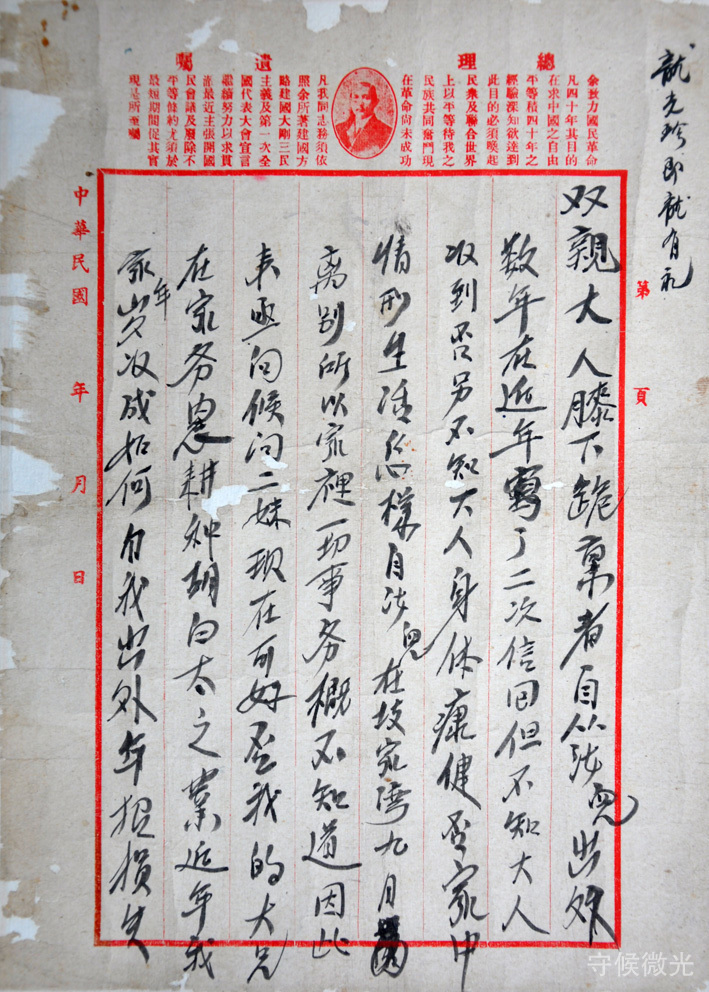 龍光珍即龍有礼
總理遺囑
余致力國民革命
凡四十年其目的
在求中國之自由
平等積四十年之
經驗深知欲達到
此目的必須喚起
民衆及聯合世界
上以平等待我之
民族共同奮鬥現
在革命尚未成功
凡我同志務須依
照余所著建國方
略建國大剛三民
主義及第一次全
國代表大會宣言
繼續努力以求貫
澈最近主張開國
民會議及廢除不
平等條約尤須於
最短期間促其實
現是所至囑
第 頁
双親大人膝下跪禀者自从兒出外
数年在近年寫了二次信回但不知大人
收到否另不知大人身体康健否家中
情形生活怎樣自兒在坟家灣九月
离别所以家裡一切事务概不知道因此
表亟问候问二妹現在可好否我的大兄
在家务農耕种胡白太之業近年我
家年岁收成如何自我出外年损失
中華民國 年 月 日
守候微光